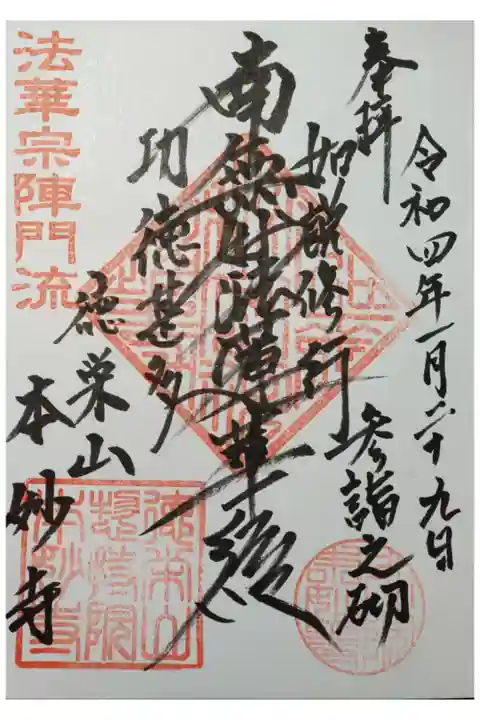 奉拝
令和四年一月二十九日
参詣之砌
如説修行
南無妙法蓮華経
功徳甚多
徳栄山
本妙寺
法華宗陣門流
徳栄山
本妙寺